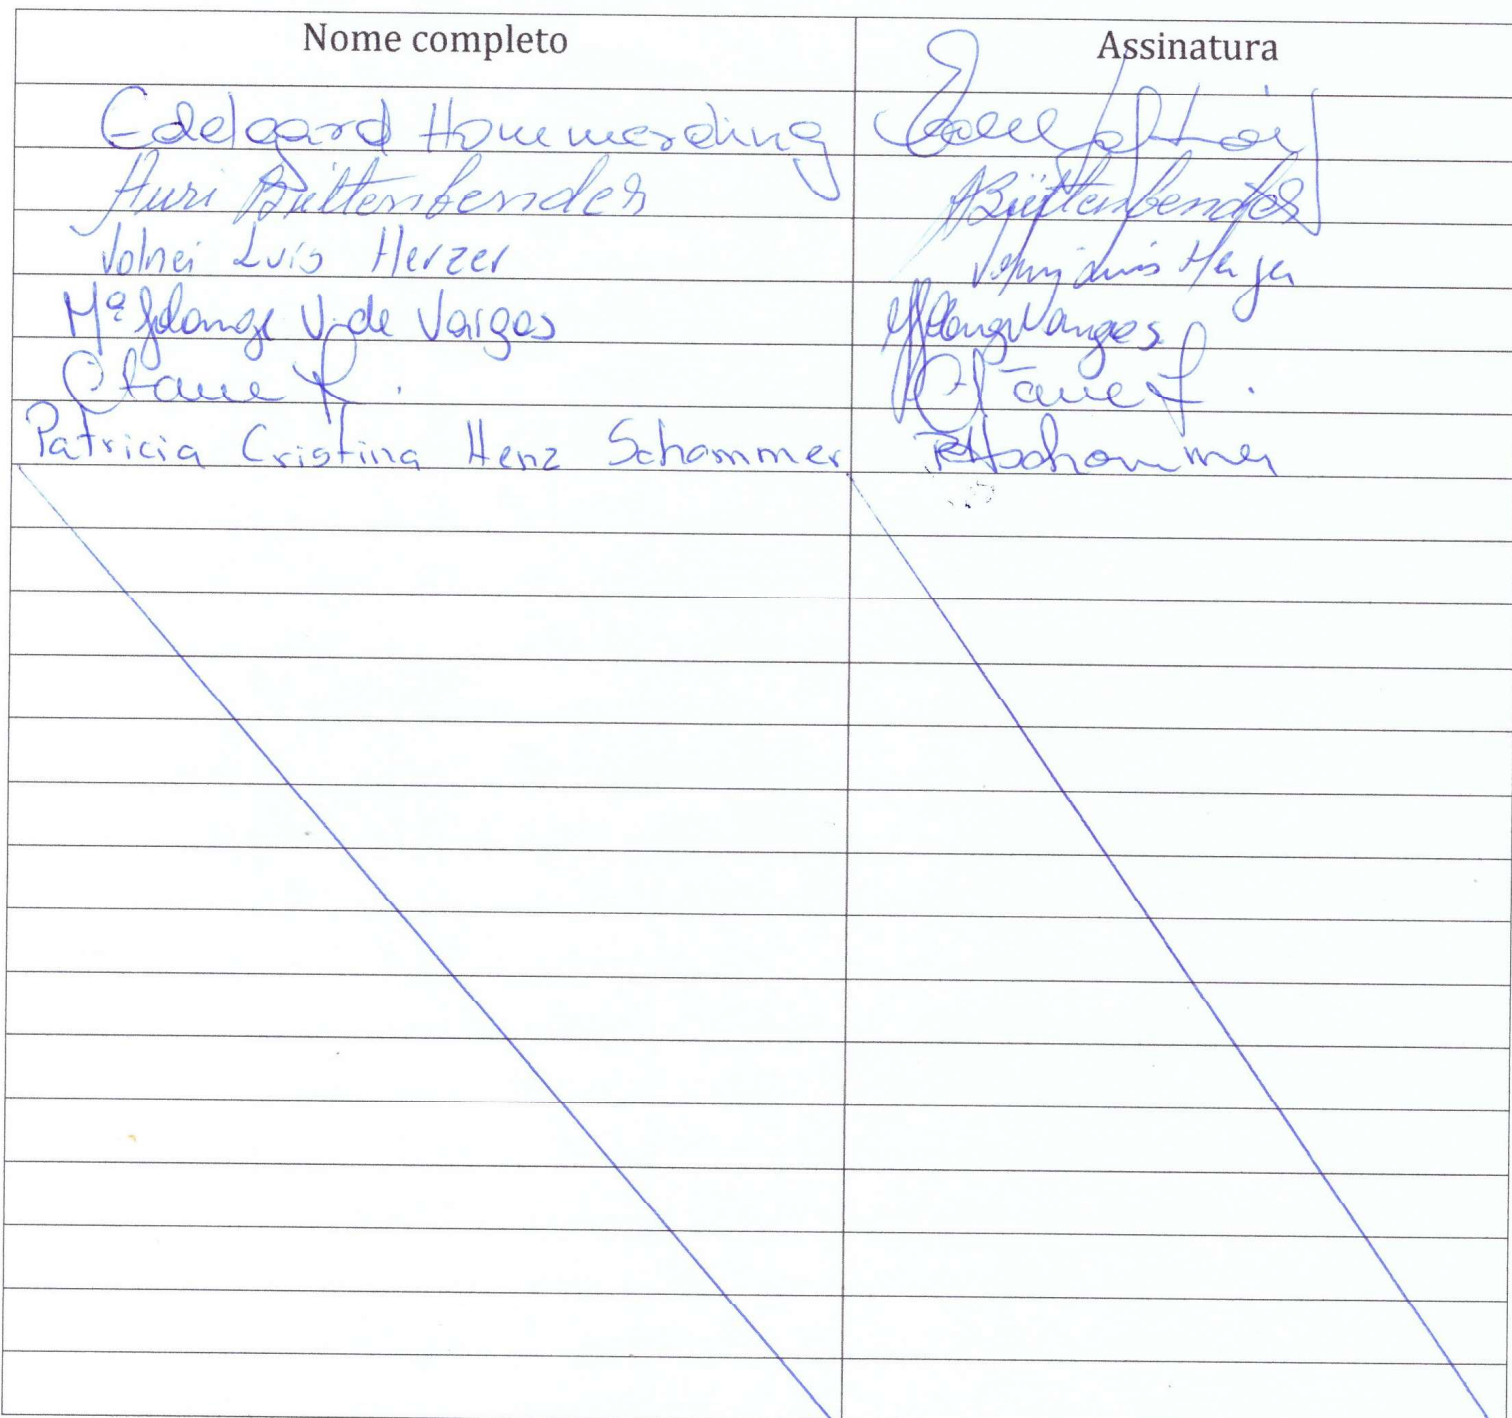 Nome completo Assinatura
Edelgard Hommerding
Auri Büttenbender ABüttenbender
Volnei Luís Herzer Volnei Luis Herzer
Mª Solange V. de Vargas
Patricia Cristina Henz Schommer PCHSchommer